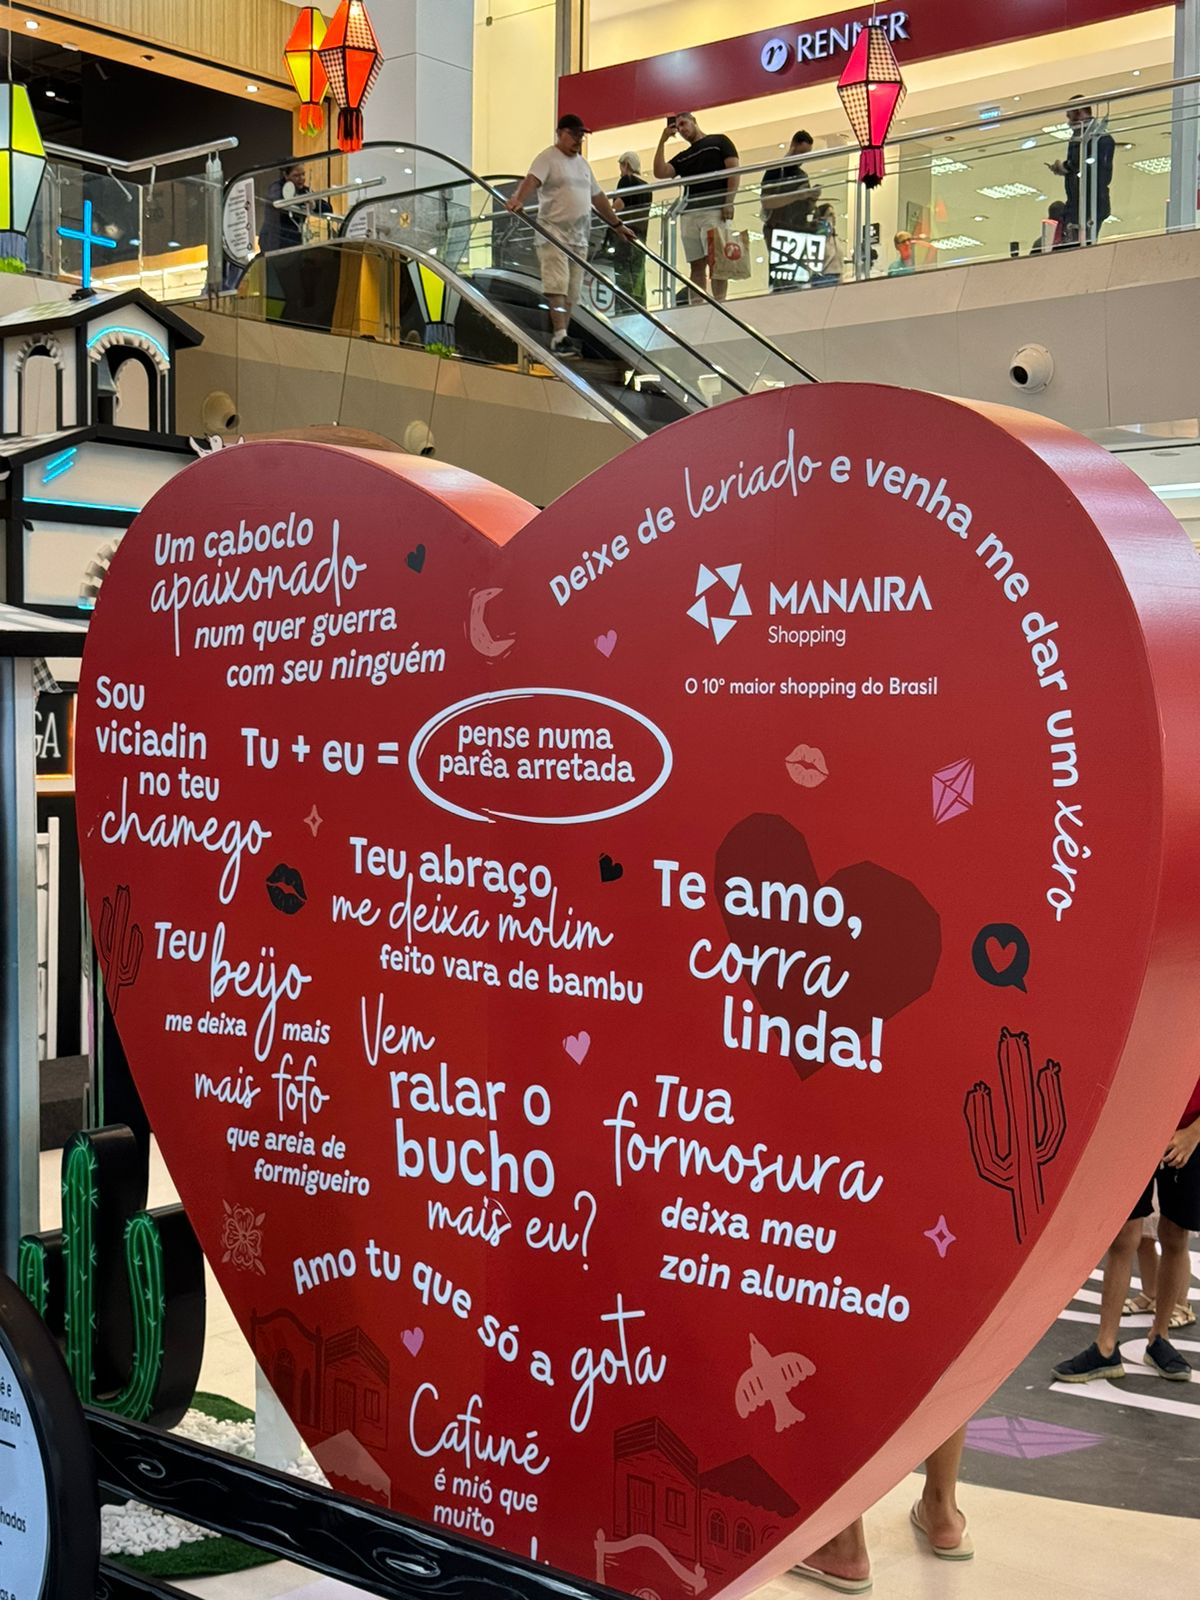 RENNER
E
Um caboclo
apaixonado
num quer guerra
com seu ninguém
Deixe de leriado e venha me dar um xêro
MANAIRA
Shopping
O 10° maior shopping do Brasil
Sou
viciadin
no teu
chamego
Tu + eu =
pense numa
parêa arretada
Teu abraço
me deixa molim
feito vara de bambu
Te amo,
corra
linda!
Teu beijo
me deixa mais
mais fofo
que areia de
formigueiro
Vem
ralar o
bucho
mais eu?
Tua
formosura
deixa meu
zoin alumiado
Amo tu que só a gota
Cafuné
é mió que
muito